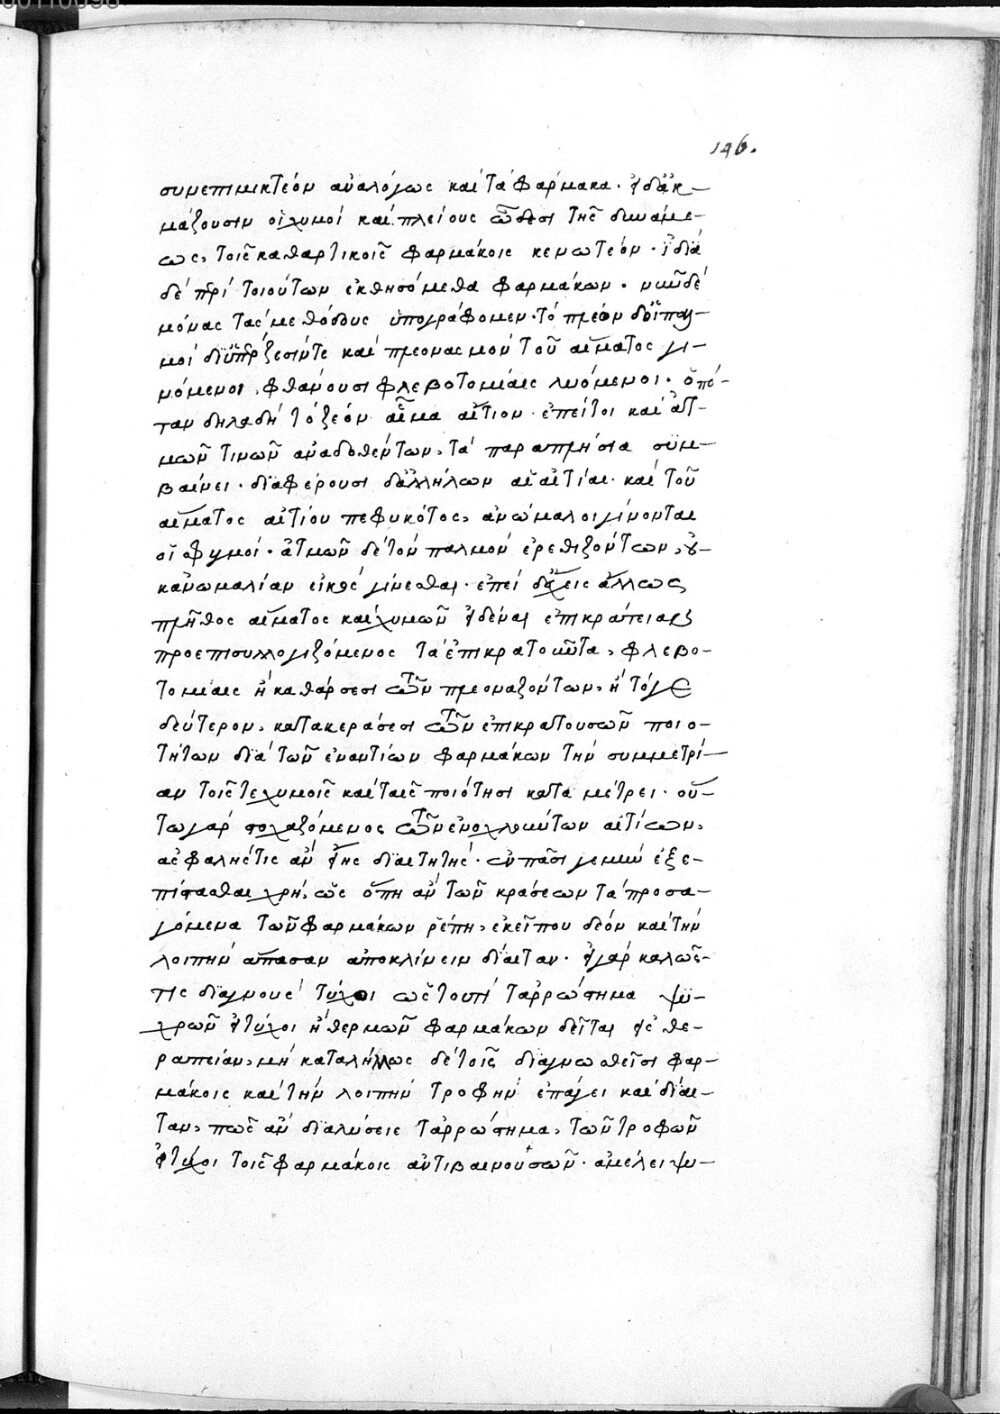 146.
συνεπιμικτέον ἀναλόγως καὶ τὰ φάρμακα.
μάζουσιν οἱ χυμοὶ καὶ πλείους ὦσι τῆς δυνάμε-
ως, τοῖς καθαρτικοῖς φαρμάκοις κενωτέον. ἰδίᾳ
δὲ περὶ τοιούτων ἐκθησόμεθα φαρμάκων. νῦν δὲ
μόνας τὰς μεθόδους ὑπογράφομεν. τὸ πλέον δὲ οἱ παλ-
μοὶ καὶ πλεονασμὸν τοῦ αἵματος γι-
νόμενοι, φθάνουσι φλεβοτομίαις λυόμενοι. ὁπό-
ταν δηλαδὴ τὸ ζέον αἷμα αἴτιον. ἐπεί τοι καὶ ἀτ-
μῶν τινῶν ἀναδοθέντων, τὰ παραπλήσια συμ-
βαίνει. διαφέρουσι δ' ἀλλήλων αἱ αἰτίαι. καὶ τοῦ
αἵματος αἰτίου πεφυκότος, ἀνώμαλοι γίνονται
οἱ σφυγμοί. ἀτμῶν δὲ τὸν παλμὸν ἐρεθιζόντων, οὐ-
κ ἀνωμαλίαν εἰκὸς γίνεσθαι. ἐπεὶ δ' ἔχεις ἄλλως
πλῆθος αἵματος καὶ χυμῶν ἐπικρατείας
προεπισυλλογιζόμενος τὰ ἐπικρατοῦντα, φλεβο-
τομίαις ἢ καθάρσεσι τῶν πλεοναζόντων, ἢ τό γε
δεύτερον, κατακεράσεσι τῶν ἐπικρατουσῶν ποιο-
τήτων διὰ τῶν ἐναντίων φαρμάκων τὴν συμμετρί-
αν τοῖς τε χυμοῖς καὶ ταῖς ποιότησι καταμέτρει. οὕ-
τω γὰρ στοχαζόμενος τῶν ἐνοχλούντων αἰτίων,
ἀσφαλής τις ἂν διαιτητής. ἐν πᾶσι ἐξε-
πίστασθαι χρή, ὡς ὅπη ἂν τῶν κράσεων τὰ προσα-
γόμενα τῶν φαρμάκων ῥέπῃ, ἐκεῖ που δέον καὶ τὴν
λοιπὴν ἅπασαν ἀποκλίνειν δίαιταν. γὰρ καλῶς
τις διαγνοὺς τύχοι ὡς τουτὶ τἀρρώστημα ψυ-
χρῶν τύχοι ἢ θερμῶν φαρμάκων δεῖται θε-
ραπείαν, μὴ καταλλήλως δὲ τοῖς διαγνωσθεῖσι φαρ-
μάκοις καὶ τὴν λοιπὴν τροφὴν ἐπάγει καὶ δίαι-
ταν, πῶς ἂν διαλύσειε τἀρρώστημα, τῶν τροφῶν
τύχοι τοῖς φαρμάκοις ἀντιβαινουσῶν. ἀμέλει ψυ-